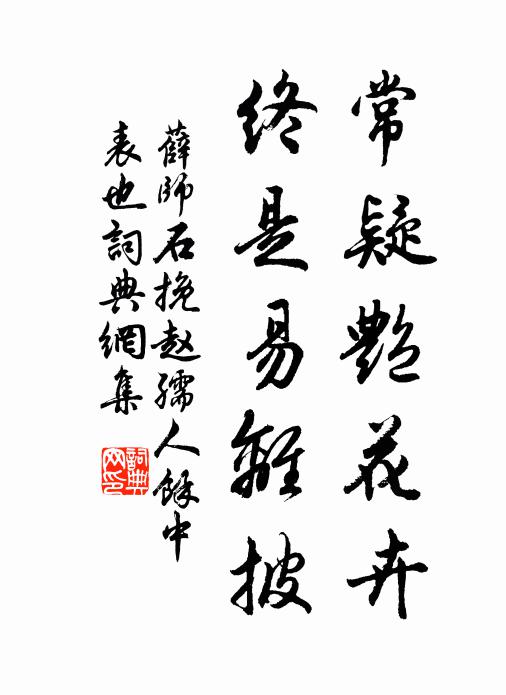 常疑艷花卉
終是易離披
薛師石挽赵孺人餘中
表也詞典網集
詞典
网印